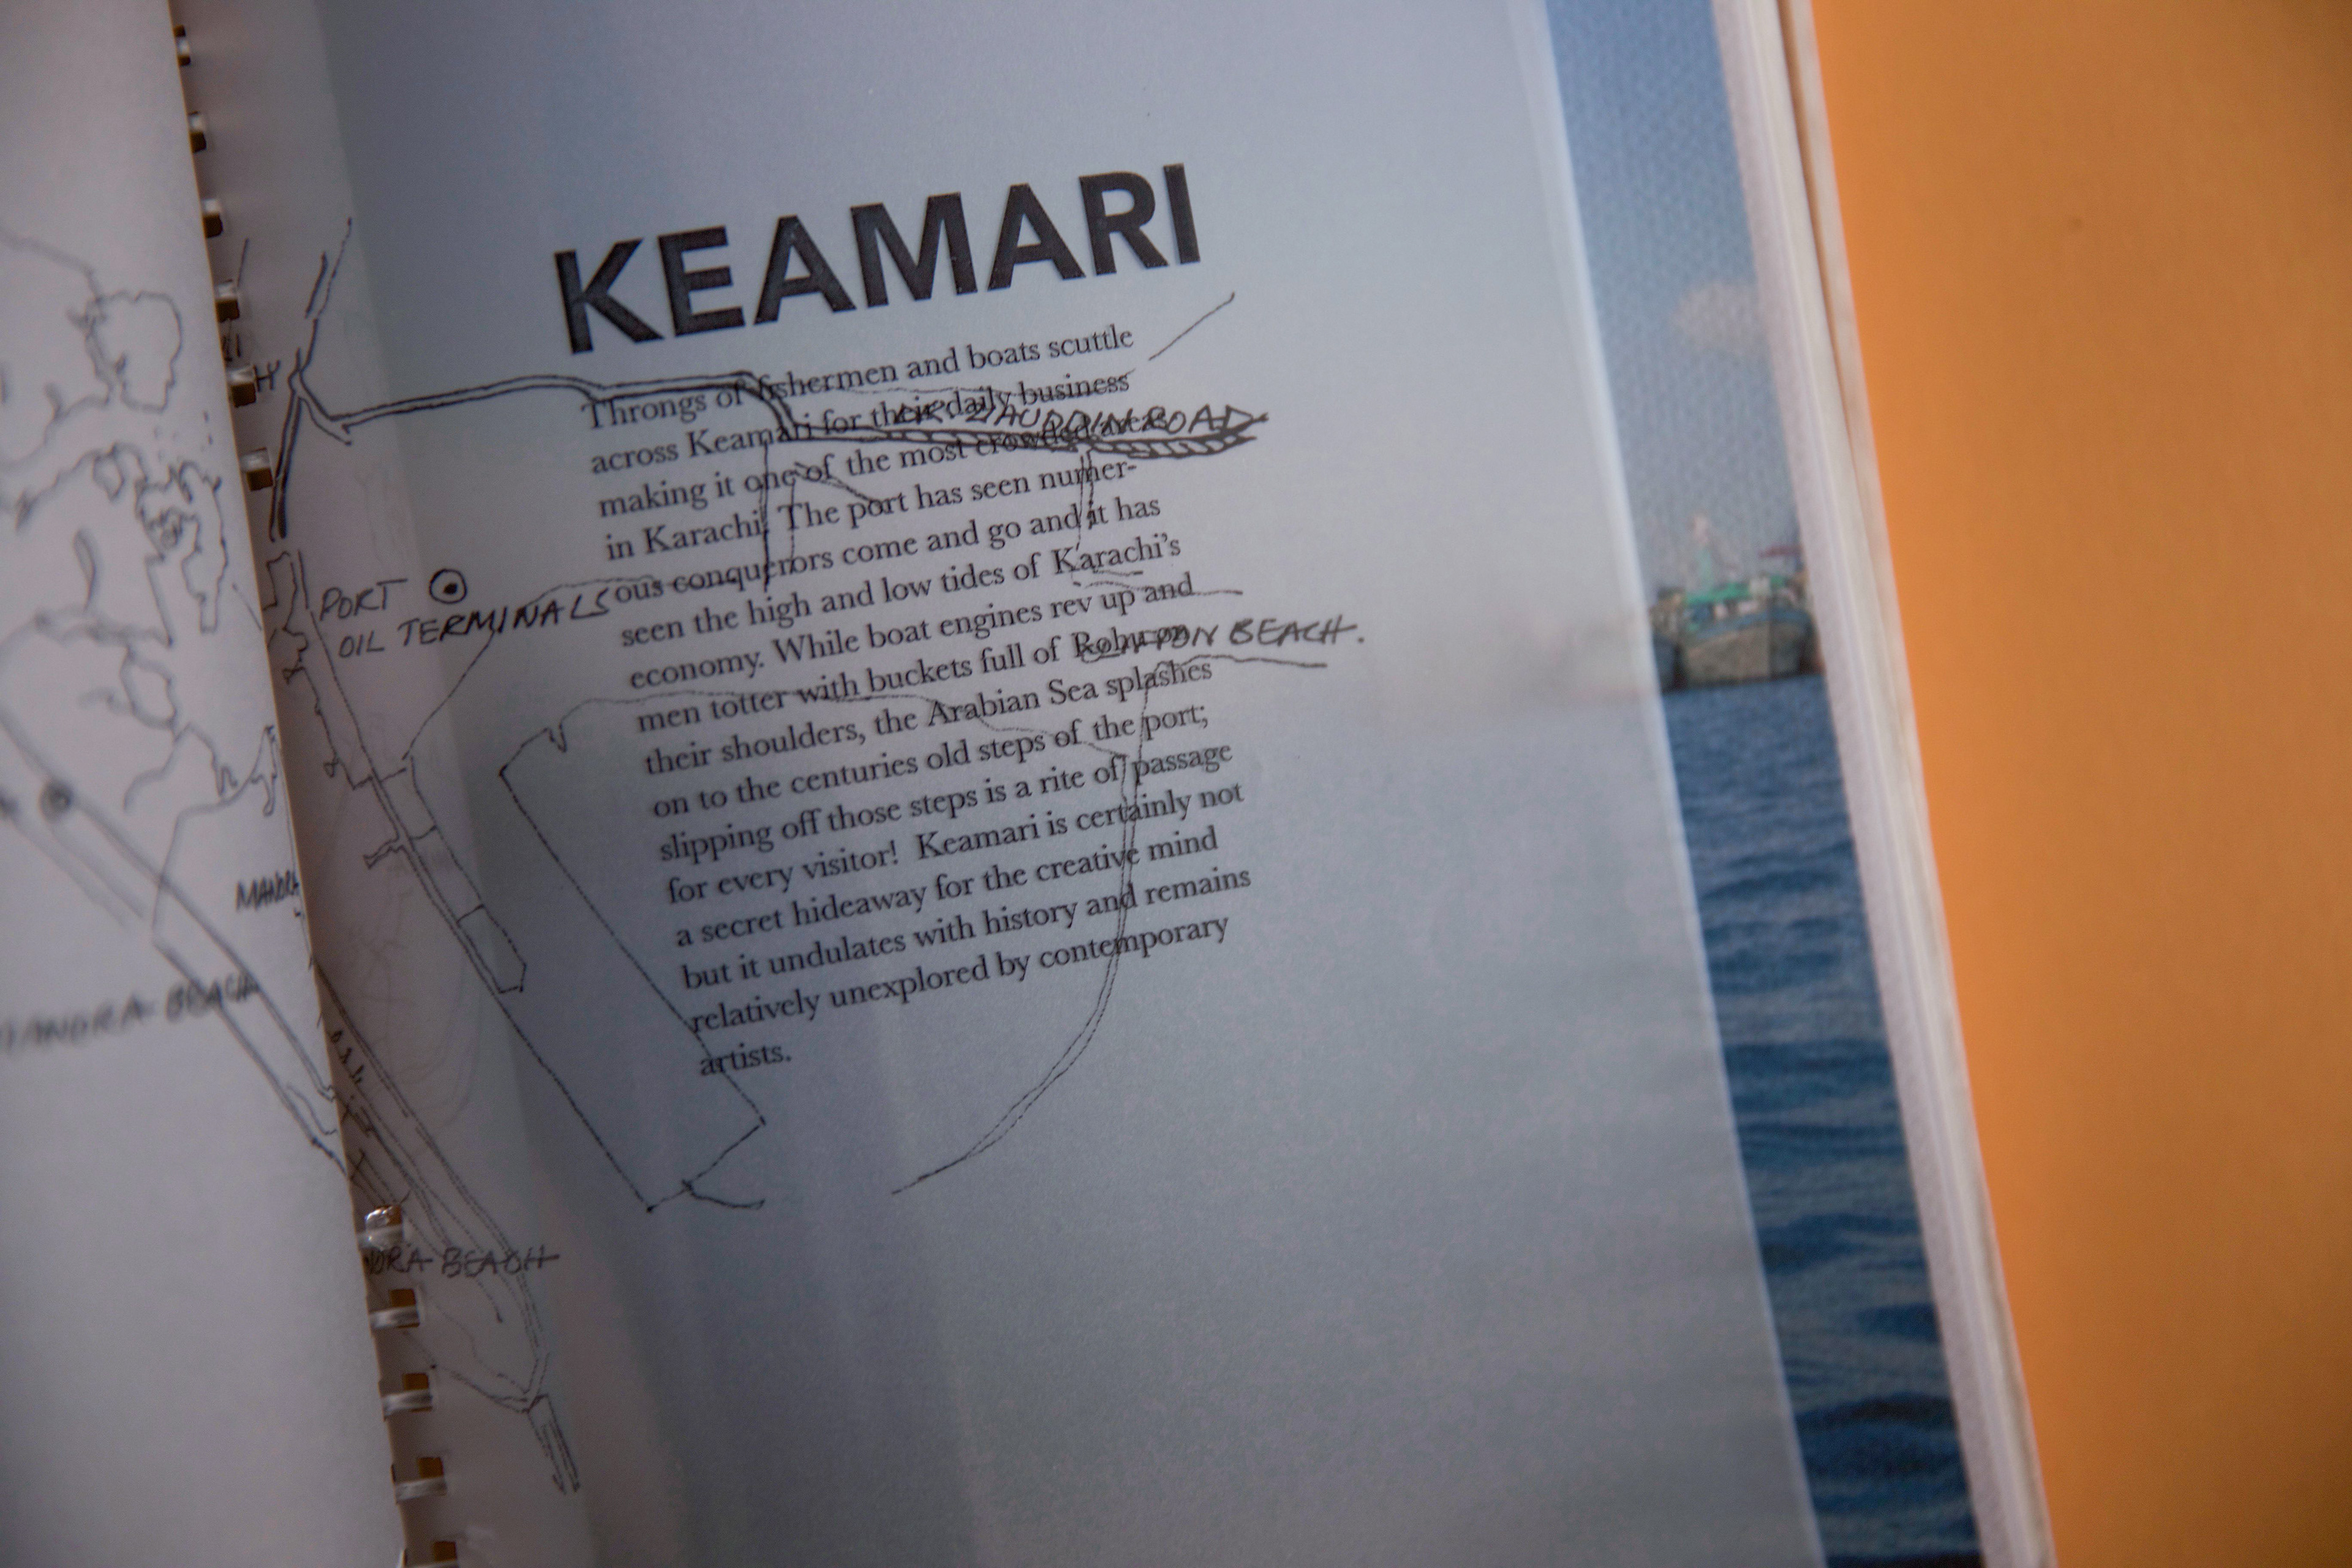 KEAMARI
Throngs of fishermen and boats scuttle
across Keamari for their daily business
making it one of the most crowded areas
in Karachi. The port has seen numer-
ous conquerors come and go and it has
seen the high and low tides of Karachi's
economy. While boat engines rev up and
men totter with buckets full of Rohu on
their shoulders, the Arabian Sea splashes
on to the centuries old steps of the port;
slipping off those steps is a rite of passage
for every visitor! Keamari is certainly not
a secret hideaway for the creative mind
but it undulates with history and remains
relatively unexplored by contemporary
artists.
ZIAUDDIN ROAD
PORT
OIL TERMINALS
BEACH.
MANORA
BEACH
BEACH